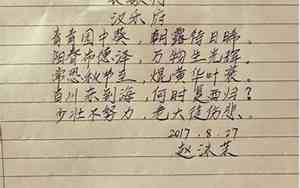 汉乐府
青青园中葵，朝露待日晞。
阳春布德泽，万物生光辉。
常恐秋节至，焜黄华叶衰。
百川东到海，何时复西归？
少壮不努力，老大徒伤悲。
2017.8.27
赵沐